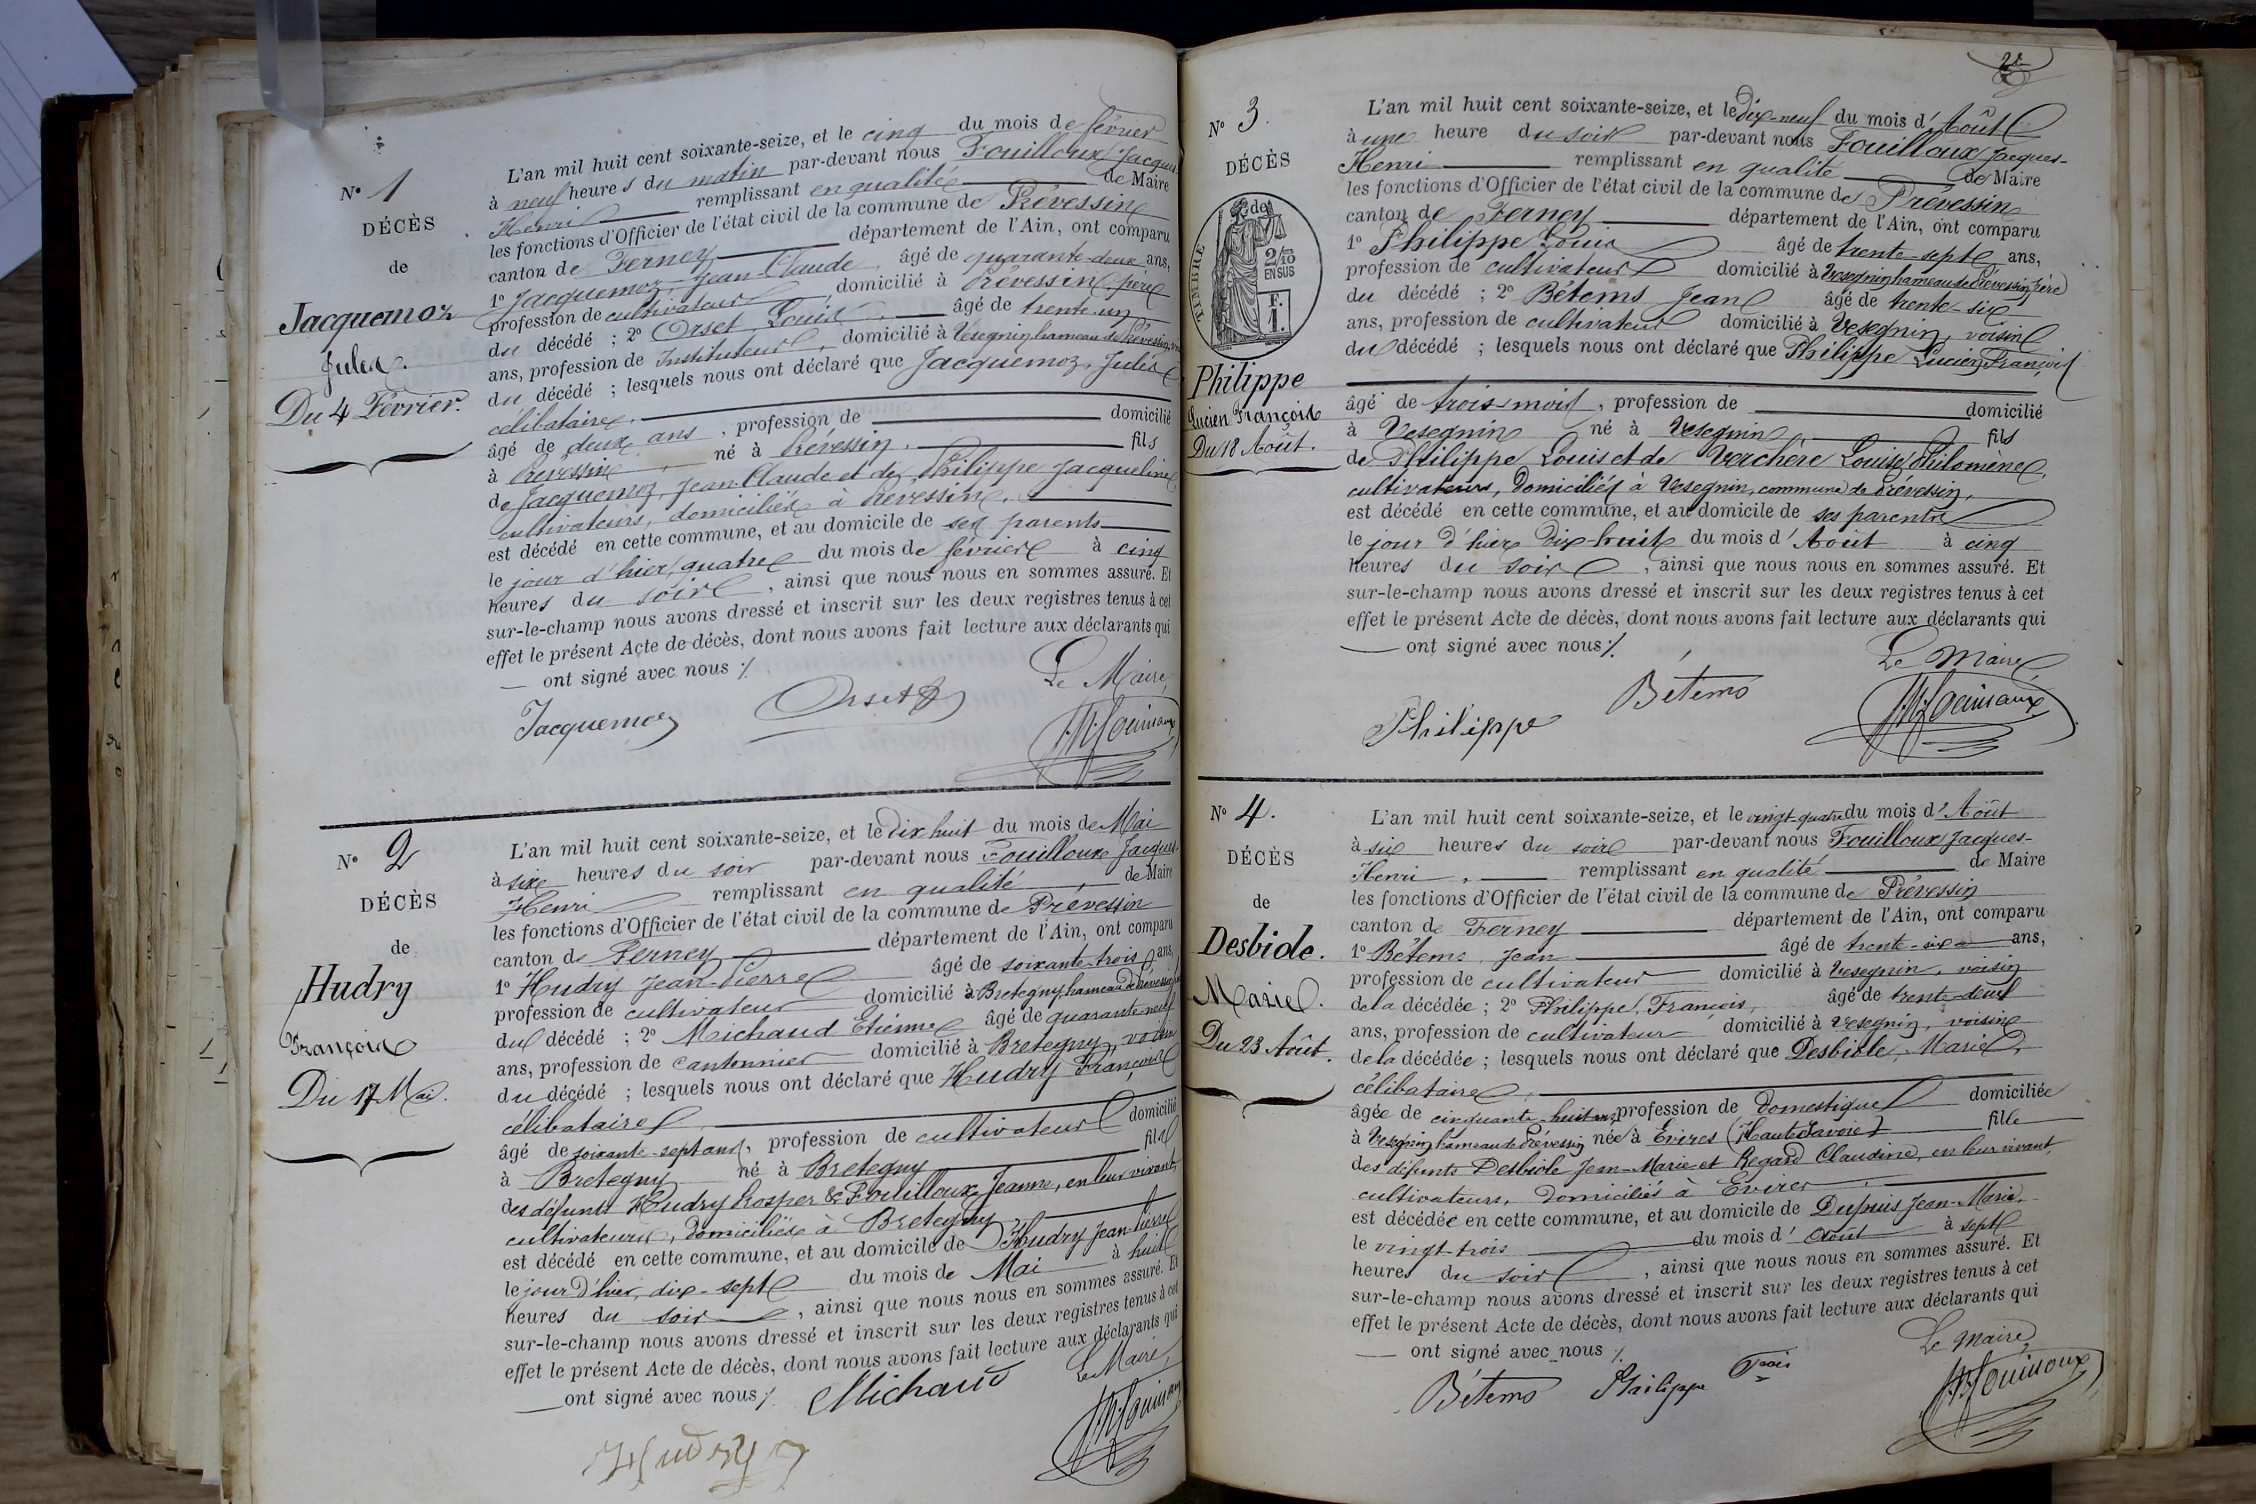 N° 1
DÉCÈS
de
Jacquemoz
Jules.
Du 4 Février.
L'an mil huit cent soixante-seize, et le cinq du mois de février
à neuf heures du matin par-devant nous Fouilloux Jacques
Henri remplissant en qualité de Maire
les fonctions d'Officier de l'état civil de la commune de Prévessin
canton de Ferney département de l'Ain, ont comparu
1° Jacquemoz, Jean-Claude, âgé de quarante-deux ans,
profession de cultivateur domicilié à Prévessin, père
du décédé ; 2° Orset Louis, âgé de trente-un
ans, profession de Instituteur, domicilié à Vesegnin hameau de Prévessin,
du décédé ; lesquels nous ont déclaré que Jacquemoz, Jules
célibataire,
âgé de deux ans, profession de domicilié
à Prévessin, né à Prévessin, fils
de Jacquemoz, Jean-Claude et de Philippe Jacqueline
cultivateurs, domiciliés à Prévessin,
est décédé en cette commune, et au domicile de ses parents
le jour d'hier, quatre du mois de février à cinq
heures du soir, ainsi que nous nous en sommes assuré. Et
sur-le-champ nous avons dressé et inscrit sur les deux registres tenus à cet
effet le présent Acte de décès, dont nous avons fait lecture aux déclarants qui
ont signé avec nous ./.
Le Maire,
Jacquemoz Orset
N° 2
DÉCÈS
de
Hudry
François
Du 17 Mai.
L'an mil huit cent soixante-seize, et le dix huit du mois de Mai
à six heures du soir par-devant nous Fouilloux Jacques
Henri remplissant en qualité de Maire
les fonctions d'Officier de l'état civil de la commune de Prévessin
canton de Ferney département de l'Ain, ont comparu
1° Hudry Jean-Pierre âgé de soixante-trois ans,
profession de cultivateur domicilié à Bretegny, hameau de Prévessin
du décédé ; 2° Michaud Etienne âgé de quarante-neuf
ans, profession de cantonnier domicilié à Bretegny, voisin
du décédé ; lesquels nous ont déclaré que Hudry François
célibataire,
âgé de soixante-sept ans, profession de cultivateur domicilié
à Bretegny né à Bretegny fils
des défunts Hudry Prosper & Fouilloux Jeanne, en leur vivant,
cultivateurs, domiciliés à Bretegny,
est décédé en cette commune, et au domicile de Hudry Jean-Pierre
le jour d'hier, dix-sept du mois de Mai à huit
heures du soir, ainsi que nous nous en sommes assuré. Et
sur-le-champ nous avons dressé et inscrit sur les deux registres tenus à cet
effet le présent Acte de décès, dont nous avons fait lecture aux déclarants qui
ont signé avec nous ./. Michaud Le Maire,
Hudry
N° 3.
DÉCÈS
de
TIMBRE
2/10
EN SUS
F.
1.
Philippe
Lucien François
Du 18 Août.
L'an mil huit cent soixante-seize, et le dix-neuf du mois d'Août
à une heure du soir par-devant nous Fouilloux Jacques-
Henri remplissant en qualité de Maire
les fonctions d'Officier de l'état civil de la commune de Prévessin
canton de Ferney département de l'Ain, ont comparu
1° Philippe Louis âgé de trente-sept ans,
profession de cultivateur domicilié à Vesegnin hameau de Prévessin, père
du décédé ; 2° Bétems Jean âgé de trente-six
ans, profession de cultivateur domicilié à Vesegnin, voisin
du décédé ; lesquels nous ont déclaré que Philippe Lucien François
âgé de trois mois, profession de domicilié
à Vesegnin né à Vesegnin fils
de Philippe Louis et de Verchère Louise Philomène,
cultivateurs, domiciliés à Vesegnin, commune de Prévessin,
est décédé en cette commune, et au domicile de ses parents
le jour d'hier dix-huit du mois d'Août à cinq
heures du soir, ainsi que nous nous en sommes assuré. Et
sur-le-champ nous avons dressé et inscrit sur les deux registres tenus à cet
effet le présent Acte de décès, dont nous avons fait lecture aux déclarants qui
ont signé avec nous ./.
Le Maire,
Philippe Bétems
N° 4.
DÉCÈS
de
Desbiole.
Marie.
Du 23 Août.
L'an mil huit cent soixante-seize, et le vingt-quatre du mois d'Août
à six heures du soir par-devant nous Fouilloux Jacques-
Henri, remplissant en qualité de Maire
les fonctions d'Officier de l'état civil de la commune de Prévessin
canton de Ferney département de l'Ain, ont comparu
1° Bétems, Jean âgé de trente-six ans,
profession de cultivateur domicilié à Vesegnin, voisin
de la décédée ; 2° Philippe, François, âgé de trente-deux
ans, profession de cultivateur domicilié à Vesegnin, voisin
de la décédée ; lesquels nous ont déclaré que Desbiole, Marie,
célibataire,
âgée de cinquante-huit ans, profession de Domestique domiciliée
à Vesegnin hameau de Prévessin née à Evires (Haute Savoie) fille
des défunts Desbiole Jean-Marie et Regard Claudine, en leur vivant,
cultivateurs, domiciliés à Evires,
est décédée en cette commune, et au domicile de Dupuis Jean-Marie,
le vingt-trois du mois d'Août à sept
heures du soir, ainsi que nous nous en sommes assuré. Et
sur-le-champ nous avons dressé et inscrit sur les deux registres tenus à cet
effet le présent Acte de décès, dont nous avons fait lecture aux déclarants qui
ont signé avec nous ./.
Le Maire,
Bétems Philippe Fçois